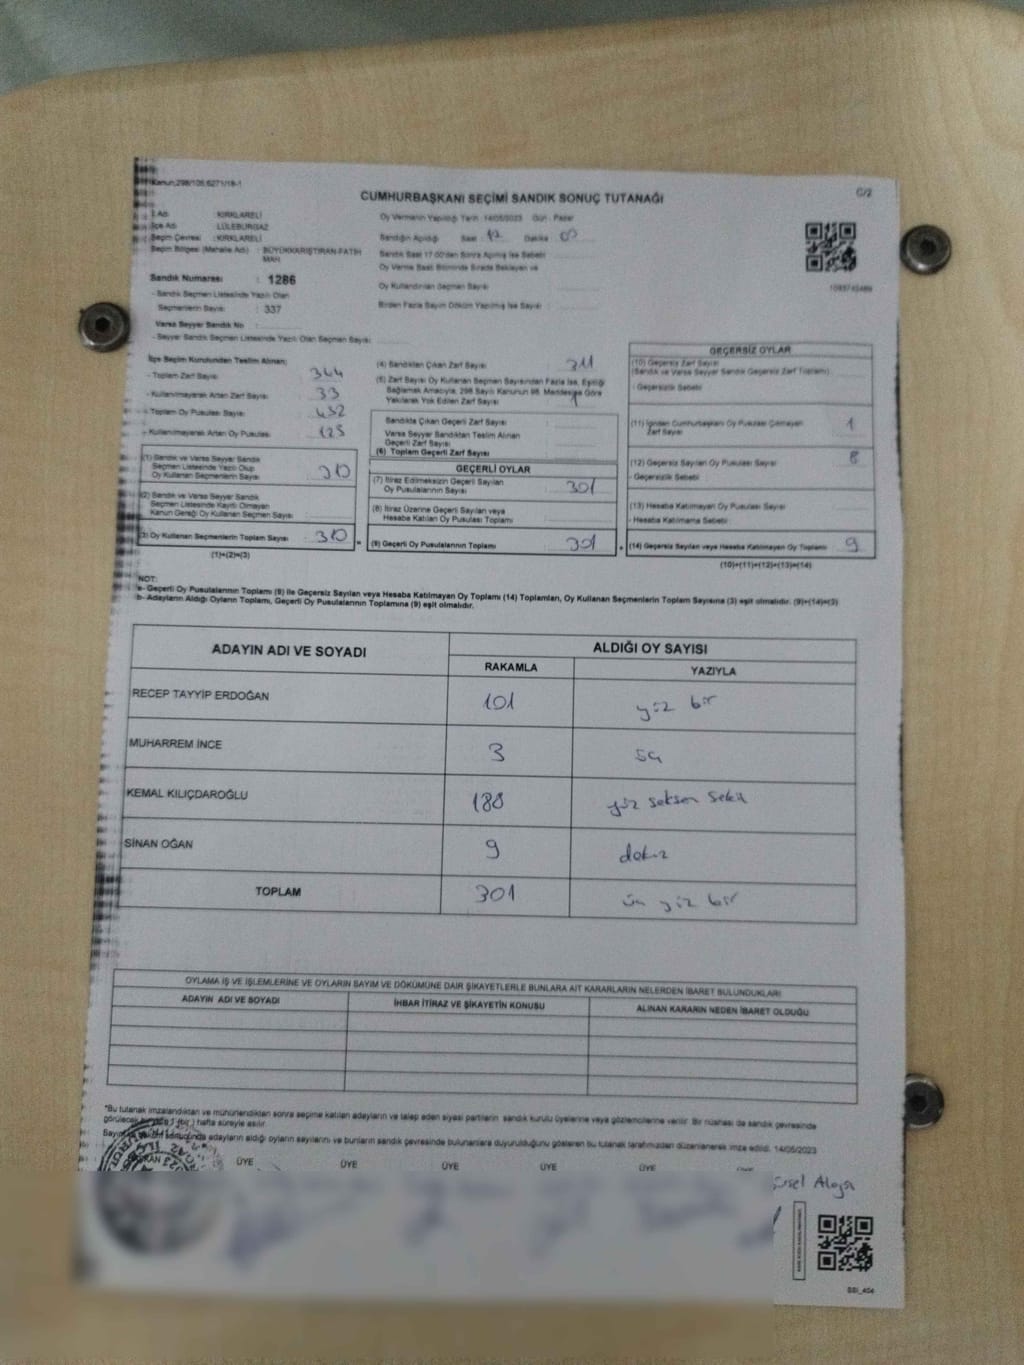 Kanun:298/105;6271/18-1
C/2
CUMHURBAŞKANI SEÇİMİ SANDIK SONUÇ TUTANAĞI
İl Adı : KIRKLARELİ
İlçe Adı : LÜLEBURGAZ
Seçim Çevresi : KIRKLARELİ
Seçim Bölgesi (Mahalle Adı) : BÜYÜKKARIŞTIRAN FATİH MAH
Sandık Numarası : 1286
- Sandık Seçmen Listesinde Yazılı Olan
Seçmenlerin Sayısı : 337
Varsa Seyyar Sandık No :
- Seyyar Sandık Seçmen Listesinde Yazılı Olan Seçmen Sayısı :
Oy Vermenin Yapıldığı Tarih : 14/05/2023 Gün : Pazar
Sandığın Açıldığı Saat : 17 Dakika : 00
Sandık Saat 17.00'den Sonra Açılmış İse Sebebi :
Oy Verme Saati Bitiminde Sırada Bekleyen ve
Oy Kullandırılan Seçmen Sayısı :
Birden Fazla Sayım Döküm Yapılmış İse Sayısı :
İlçe Seçim Kurulundan Teslim Alınan;
- Toplam Zarf Sayısı : 344
- Kullanılmayarak Artan Zarf Sayısı : 33
- Toplam Oy Pusulası Sayısı : 432
- Kullanılmayarak Artan Oy Pusulası :
(1) Sandık ve Varsa Seyyar Sandık
Seçmen Listesinde Yazılı Olup
Oy Kullanan Seçmenlerin Sayısı : 310
(2) Sandık ve Varsa Seyyar Sandık
Seçmen Listesinde Kayıtlı Olmayan
Kanun Gereği Oy Kullanan Seçmen Sayısı :
(3) Oy Kullanan Seçmenlerin Toplam Sayısı : 310
(1)+(2)=(3)
(4) Sandıktan Çıkan Zarf Sayısı : 311
(5) Zarf Sayısı Oy Kullanan Seçmen Sayısından Fazla İse, Eşitliği
Sağlamak Amacıyla, 298 Sayılı Kanunun 98. Maddesine Göre
Yakılarak Yok Edilen Zarf Sayısı : 1
Sandıkta Çıkan Geçerli Zarf Sayısı :
Varsa Seyyar Sandıktan Teslim Alınan
Geçerli Zarf Sayısı :
(6) Toplam Geçerli Zarf Sayısı :
GEÇERLİ OYLAR
(7) İtiraz Edilmeksizin Geçerli Sayılan
Oy Pusulalarının Sayısı : 301
(8) İtiraz Üzerine Geçerli Sayılan veya
Hesaba Katılan Oy Pusulası Toplamı :
(9) Geçerli Oy Pusulalarının Toplamı : 301
GEÇERSİZ OYLAR
(10) Geçersiz Zarf Sayısı
(Sandık ve Varsa Seyyar Sandık Geçersiz Zarf Toplamı) :
- Geçersizlik Sebebi
(11) İçinden Cumhurbaşkanı Oy Pusulası Çıkmayan
Zarf Sayısı : 1
(12) Geçersiz Sayılan Oy Pusulası Sayısı : 8
- Geçersizlik Sebebi
(13) Hesaba Katılmayan Oy Pusulası Sayısı :
- Hesaba Katılmama Sebebi
(14) Geçersiz Sayılan veya Hesaba Katılmayan Oy Toplamı : 9
(10)+(11)+(12)+(13)=(14)
NOT:
a- Geçerli Oy Pusulalarının Toplamı (9) ile Geçersiz Sayılan veya Hesaba Katılmayan Oy Toplamı (14) Toplamları, Oy Kullanan Seçmenlerin Toplam Sayısına (3) eşit olmalıdır. (9)+(14)=(3)
b- Adayların Aldığı Oyların Toplamı, Geçerli Oy Pusulalarının Toplamına (9) eşit olmalıdır.
ADAYIN ADI VE SOYADI
ALDIĞI OY SAYISI
RAKAMLA YAZIYLA
RECEP TAYYİP ERDOĞAN 101 yüz bir
MUHARREM İNCE 3
KEMAL KILIÇDAROĞLU 188 yüz seksen sekiz
SİNAN OĞAN 9 dokuz
TOPLAM 301 üç yüz bir
OYLAMA İŞ VE İŞLEMLERİNE VE OYLARIN SAYIM VE DÖKÜMÜNE DAİR ŞİKAYETLERLE BUNLARA AİT KARARLARIN NELERDEN İBARET BULUNDUKLARI
ADAYIN ADI VE SOYADI
İHBAR İTİRAZ VE ŞİKAYETİN KONUSU
ALINAN KARARIN NEDEN İBARET OLDUĞU
*Bu tutanak imzalandıktan ve mühürlendikten sonra seçime katılan adayların ve talep eden siyasi partilerin sandık kurulu üyelerine veya gözlemcilerine verilir. Bir nüshası da sandık çevresinde
hafta süreyle asılır.
adayların aldığı oyların sayılarını ve bunların sandık çevresinde bulunanlara duyurulduğunu gösteren bu tutanak tarafımızdan düzenlenerek imza edildi. 14/05/2023
ÜYE ÜYE ÜYE ÜYE ÜYE